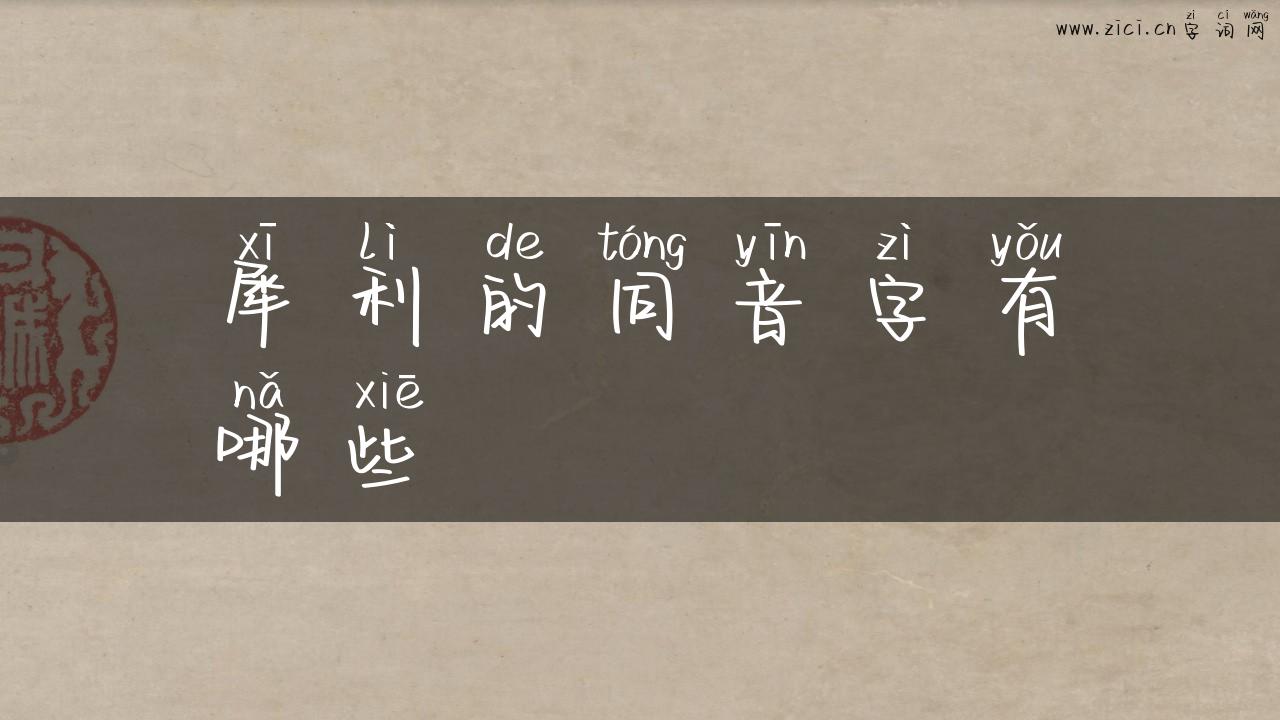 www.zici.cn zì cí wǎng 字词网
xī lì de tóng yīn zì yǒu
犀利的同音字有
nǎ xiē
哪些